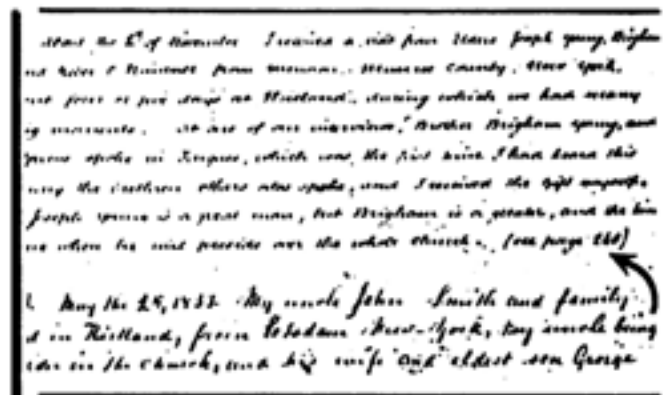 about the 8th of November I received a visit from Elders Joseph Young, Brigham
Young, from Mendon, Monroe County, New York.
four or five days at Kirtland, during which we had many
moments. At one of our interviews, Brother Brigham Young, and
spoke in Tongues, which was the first time I had heard this
the brethren others also spoke, and I received the gift myself.
Joseph Young is a great man, but Brigham is a greater, and the time
when he will preside over the whole church. (see page 240)
May the 28, 1833 My uncle John Smith and family
in Kirtland, from Potsdam New-York, my uncle being
in the church, and his wife and eldest son George